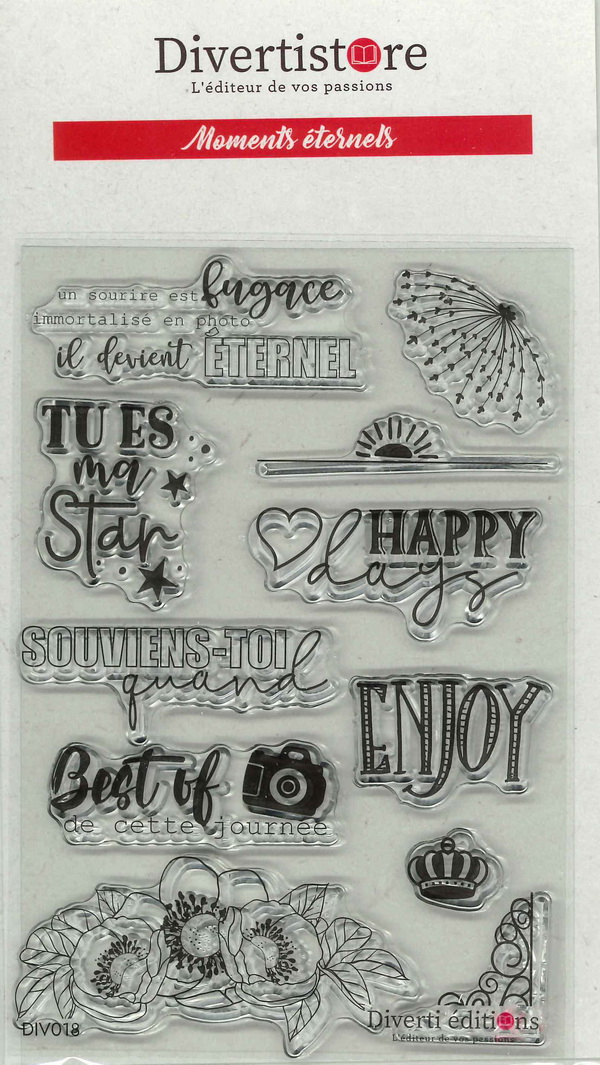 Divertistore
L'éditeur de vos passions
Moments éternels
un sourire est fugace
immortalisé en photo
il devient ÉTERNEL
TU ES
ma
Star
HAPPY
days
SOUVIENS-TOI
quand
ENJOY
Best of
de cette journée
DIV018
Diverti éditions
L'éditeur de vos passions